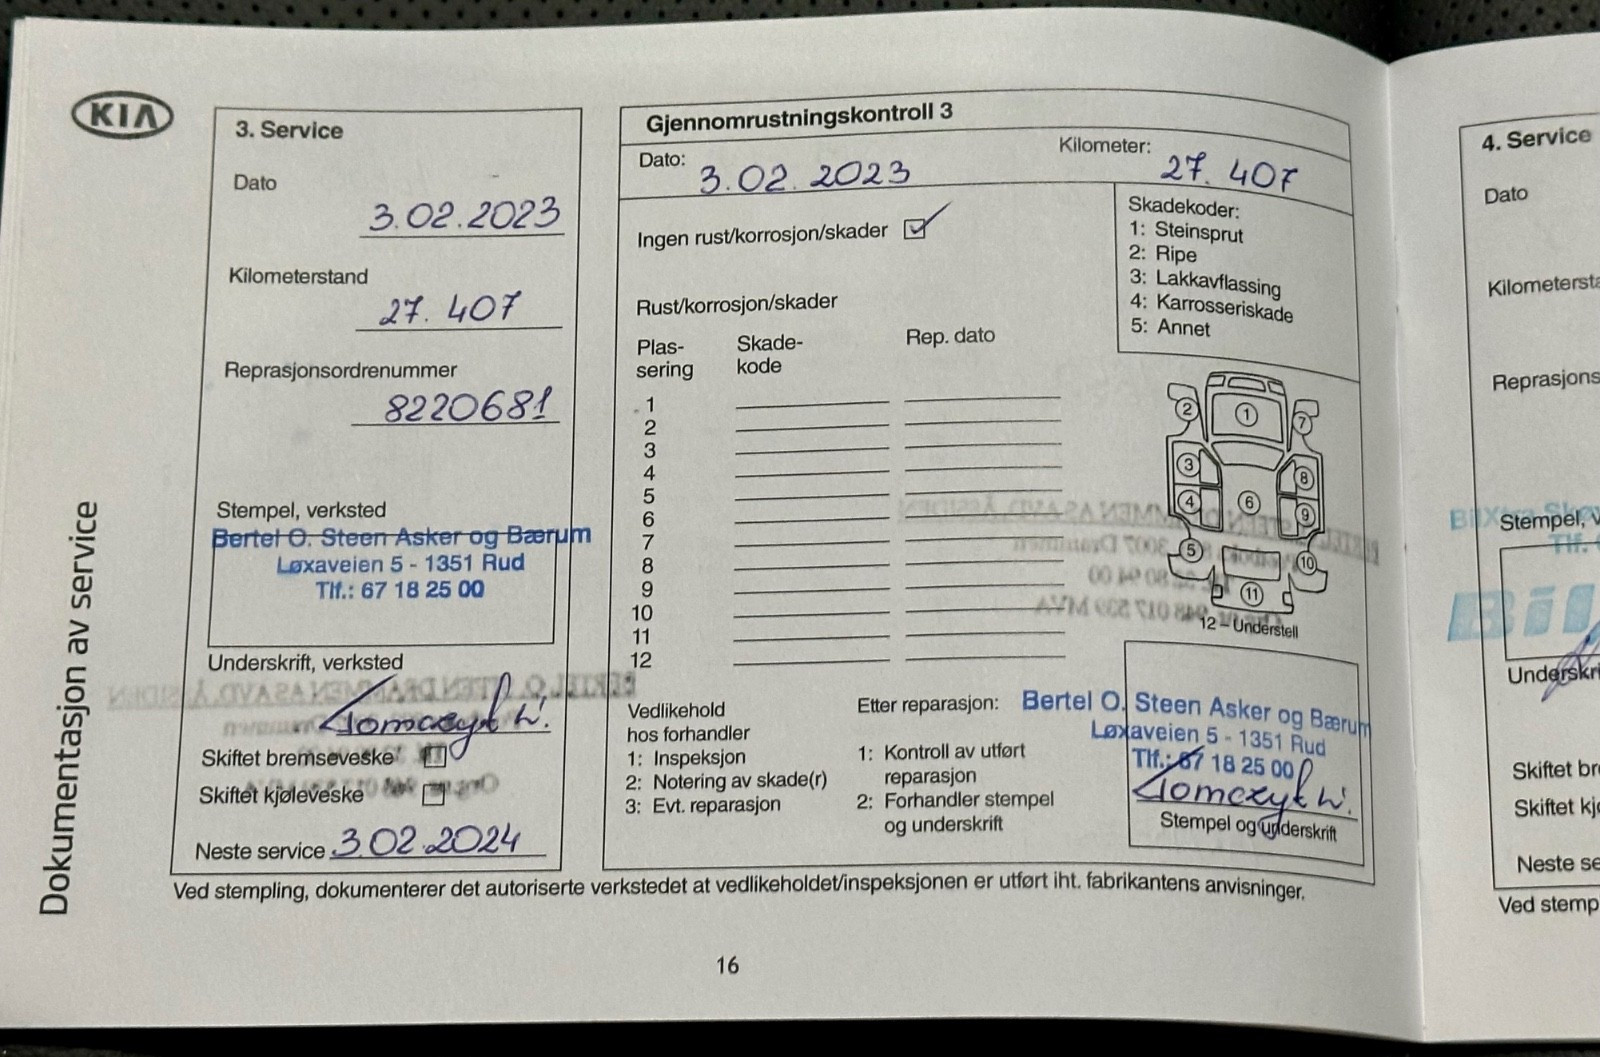 KIA
Dokumentasjon av service
3. Service
Dato
3.02.2023
Kilometerstand
27. 407
Reprasjonsordrenummer
8220681
Stempel, verksted
Bertel O. Steen Asker og Bærum
Løxaveien 5 - 1351 Rud
Tlf.: 67 18 25 00
Underskrift, verksted
Tomczyk W.
Skiftet bremseveske
Skiftet kjøleveske
Neste service 3.02.2024
Gjennomrustningskontroll 3
Dato: 3.02.2023
Kilometer: 27. 407
Ingen rust/korrosjon/skader
Skadekoder:
1: Steinsprut
2: Ripe
3: Lakkavflassing
4: Karrosseriskade
5: Annet
Rust/korrosjon/skader
Plas-
sering
Skade-
kode
Rep. dato
1
2
3
4
5
6
7
8
9
10
11
12
1
2
7
3
8
4
6
9
5
10
11
12 – Understell
Vedlikehold
hos forhandler
1: Inspeksjon
2: Notering av skade(r)
3: Evt. reparasjon
Etter reparasjon:
1: Kontroll av utført
reparasjon
2: Forhandler stempel
og underskrift
Bertel O. Steen Asker og Bærum
Løxaveien 5 - 1351 Rud
Tlf.: 67 18 25 00
Tomczyk W.
Stempel og underskrift
Ved stempling, dokumenterer det autoriserte verkstedet at vedlikeholdet/inspeksjonen er utført iht. fabrikantens anvisninger.
16
4. Service
Dato
Kilometersta
Reprasjons
Stempel, v
Tlf.
Bil
Underskri
Skiftet br
Skiftet kj
Neste se
Ved stemp